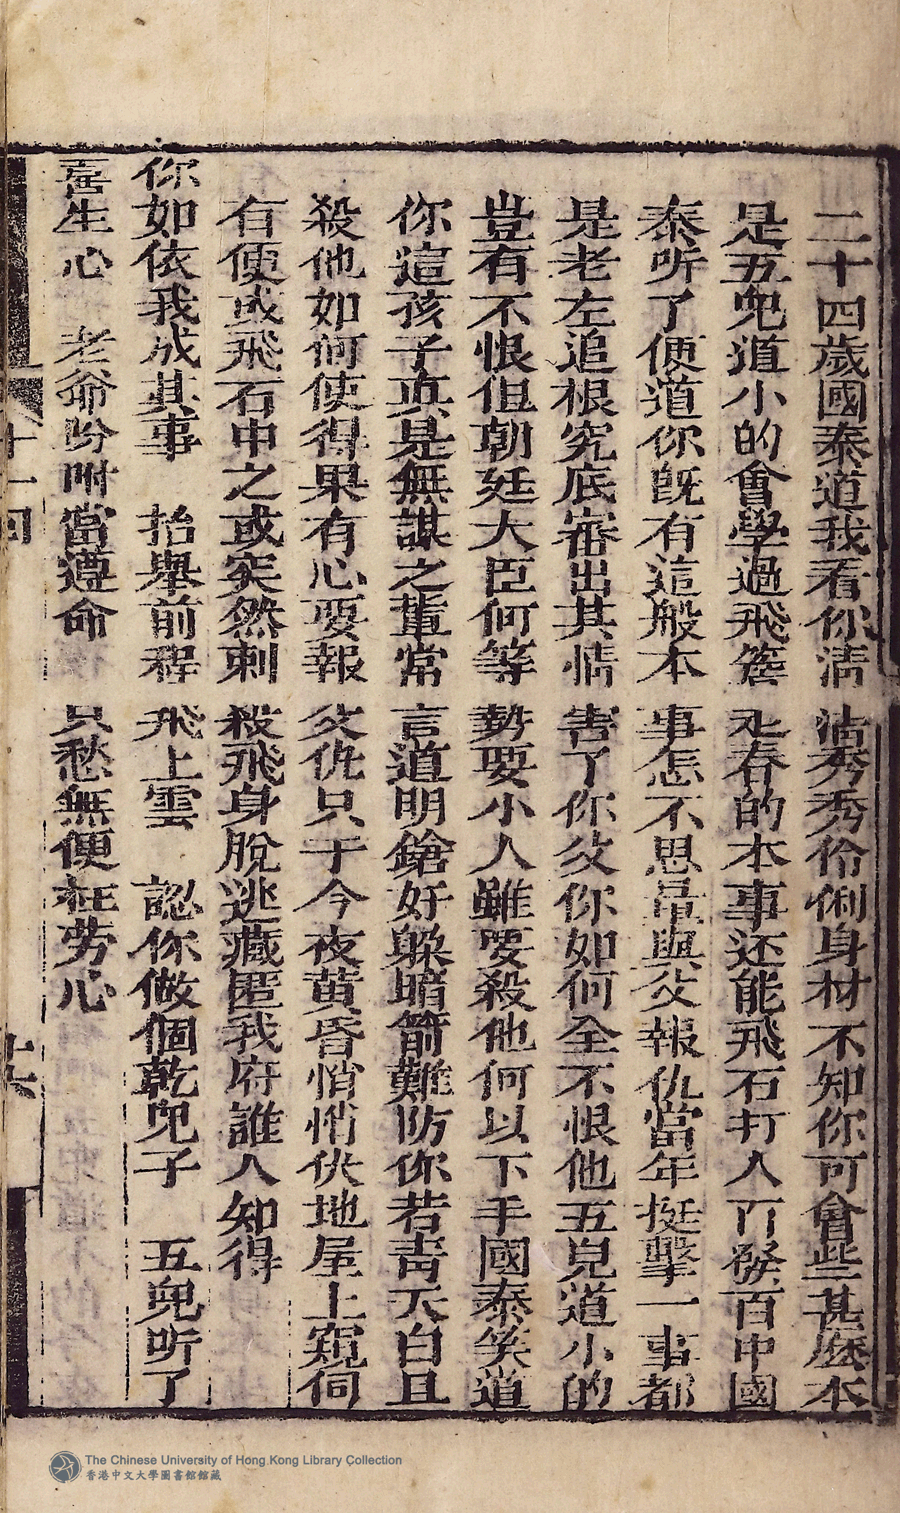 二十四歲國泰道我看你清沽秀秀伶俐身材不知你可會些甚麽本
是五兒道小的會學過飛簷走春的本事还能飛石打人百發百中國
泰听了便道你既有這般本事怎不思量與父報仇當年挺擊一事都
是老左追根究底審出其情害了你父你如何全不恨他五兒道小的
豈有不恨但朝廷大臣何等勢要小人雖要殺他何以下手國泰笑道
你這孩子真是無謀之輩常言道明鎗好躲暗箭難防你若青天白日
殺他如何使得果有心要報父仇只于今夜黄昏悄悄伏地屋上窺伺
有便或飛石中之或突然刺殺飛身脫逃藏匿我府誰人知得
你如依我成其事　抬舉前程飛上雲　認你做個乾兒子　五兒听了
喜生心　老爺吩咐當遵命　只愁無便枉劳心
十一囬
十六
The Chinese University of Hong Kong Library Collection
香港中文大學圖書館館藏